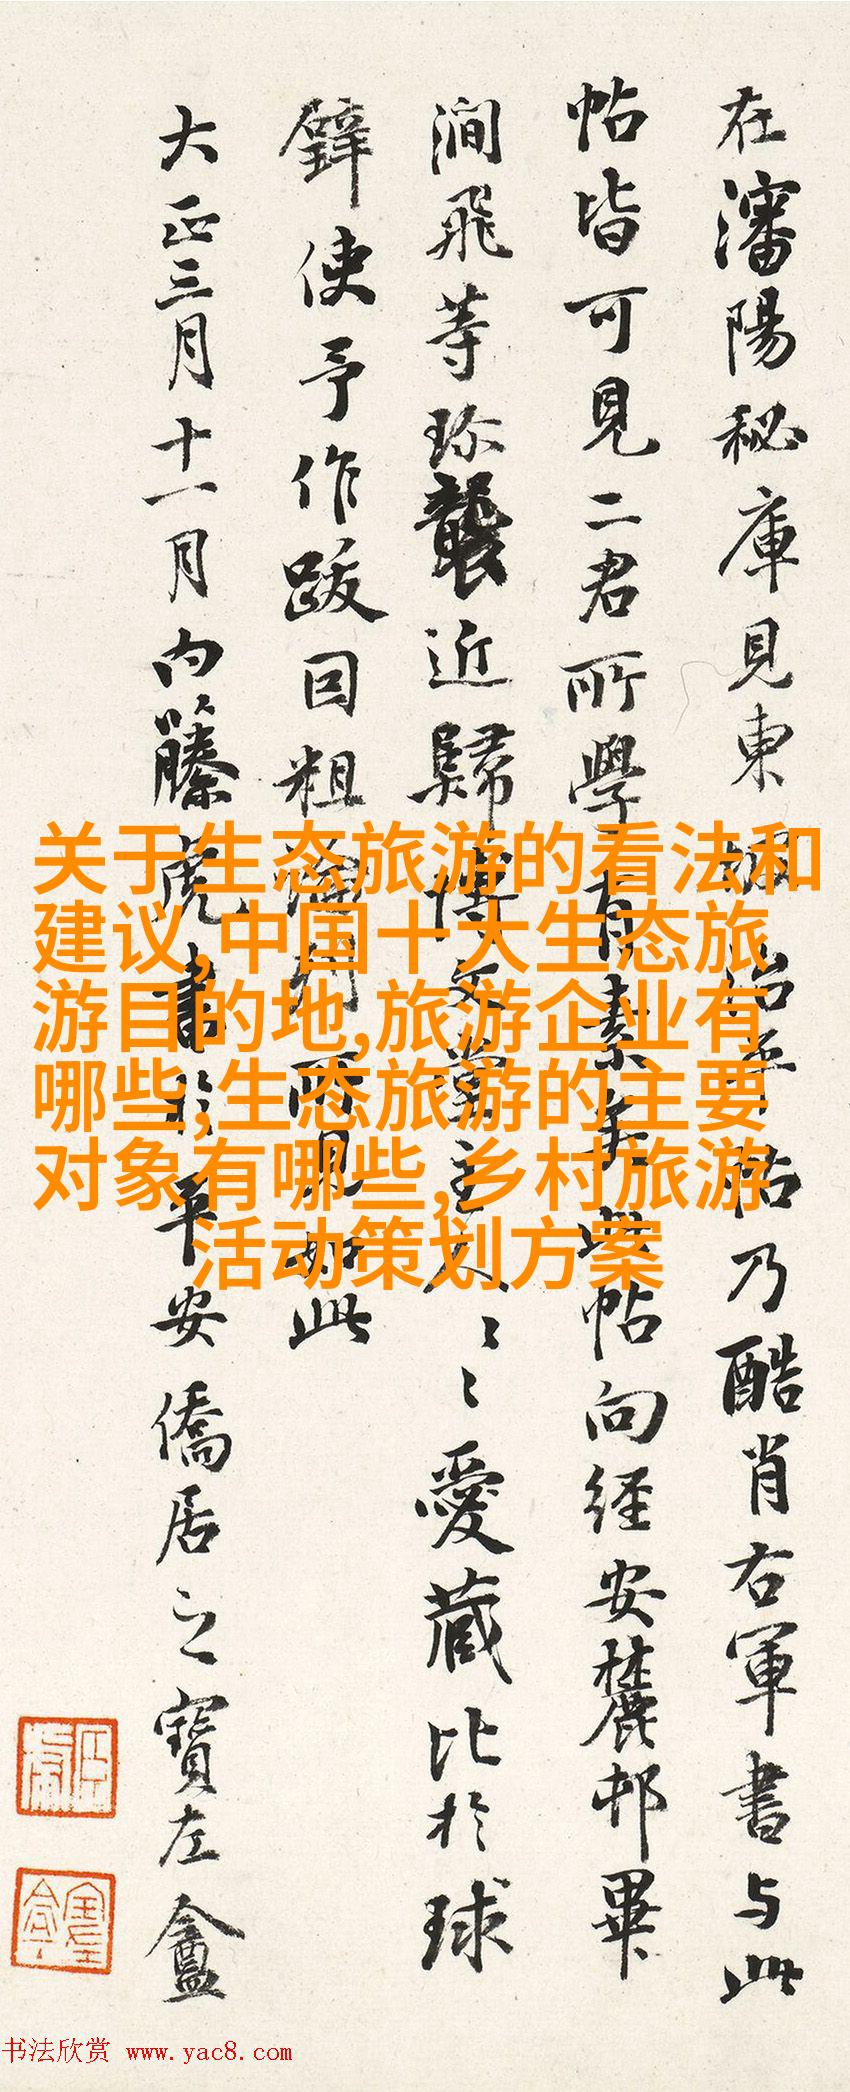 在瀋陽秘庫見東坡治平帖乃酷肖右軍書与此
帖皆可見二君所學有素矣此帖向経安麓邨畢
澗飛等珎襲近歸博文堂主人ミミ愛蔵比於球
鐸使予作跋因粗
所見如此
大正三月十一月内藤虎書於平安僑居之寶左盦
关于生态旅游的看法和
建议,中国十大生态旅
游目的地,旅游企业有
哪些,生态旅游的主要
对象有哪些,乡村旅游
活动策划方案
书法欣赏 www.yac8.com